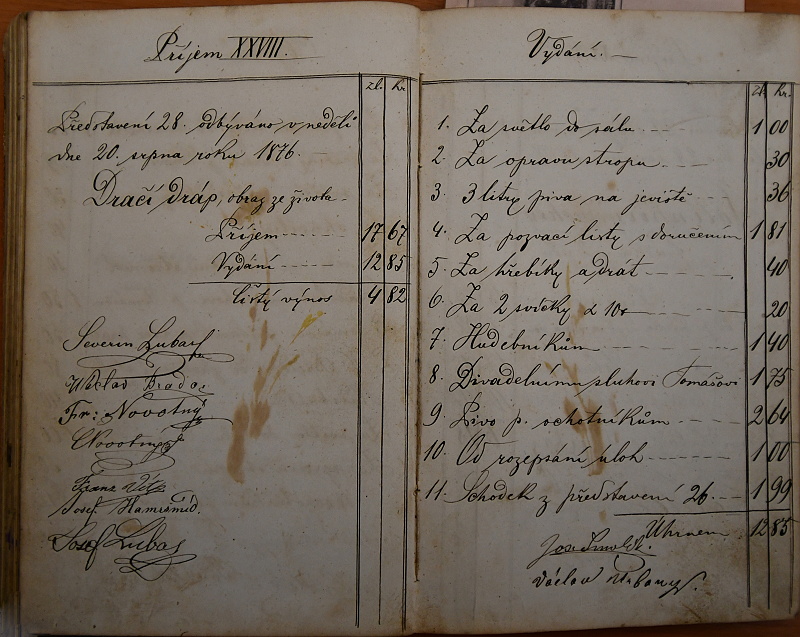 Příjem XXVIII.
zl. kr.
Představení 28. odbýváno v neděli
dne 20. srpna roku 1876.
Dračí dráp, obraz ze života.
Příjem 17 67
Vydání 12 85
čistý výnos 4 82
Severin Lubas
Václav
Fr: Novotný
Novotný
Franz
Josef
Josef Lubas
Vydání.
zl. kr.
1. Za světlo do sálu 1 00
2. Za opravu stropu 30
3. 3 litry piva na jeviště 36
4. Za pozvací listy s doručením 1 81
5. Za hřebíky a drát 40
6. Za 2 svíčky á 10 20
7. Hudebníkům 1 40
8. Divadelnímu sluhovi Tomášovi 1 75
9. Pivo p. ochotníkům 2 64
10. Od rozepsání úloh 1 00
11. Schodek z představení 26. 1 99
Uhrnem 12 85
Václav Urbany